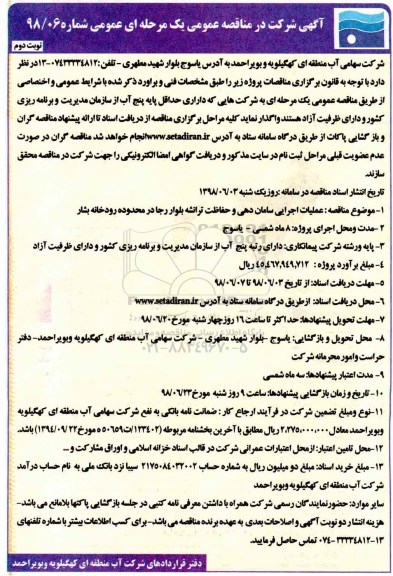 آگهی شرکت در مناقصه عمومی یک مرحله ای عمومی شماره ۹۸/۰۶
نوبت دوم
شرکت سهامی آب منطقه ای کهگیلویه و بویراحمد به آدرس یاسوج بلوار شهید مطهری - تلفن: ۱۳-۰۷۴۳۳۳۳۴۸۱۲ در نظر
دارد با توجه به قانون برگزاری مناقصات پروژه زیر را طبق مشخصات فنی و براورد ذکر شده با شرایط عمومی و اختصاصی
از طریق مناقصه عمومی یک مرحله ای به شرکت هایی که داراری حداقل پایه پنج آب از سازمان مدیریت و برنامه ریزی
کشور و دارای ظرفیت آزاد هستند واگذار نماید کلیه مراحل برگزاری مناقصه از دریافت اسناد تا ارائه پیشنهاد مناقصه گران
و باز گشایی پاکات از طریق درگاه سامانه ستاد به آدرس www.setadiran.ir انجام خواهد شد مناقصه گران در صورت
عدم عضویت قبلی مراحل ثبت نام در سایت مذکور و دریافت گواهی امضا الکترونیکی را جهت شرکت در مناقصه محقق
سازند.
تاریخ انتشار اسناد مناقصه در سامانه :روزیک شنبه ۱۳۹۸/۰۶/۰۳
۱-موضوع مناقصه : عملیات اجرایی سامان دهی و حفاظت ترانشه بلوار رجا در محدوده رودخانه بشار
۲-مدت ومحل اجرای پروژه: ۸ ماه شمسی - یاسوج
۳- پایه ورشته شرکت پیمانکاری: دارای رتبه پنج آب از سازمان مدیریت و برنامه ریزی کشور و دارای ظرفیت آزاد
۴-مبلغ برآورد پروژه : ۴۵,۴۶۷,۹۴۹,۷۱۲ ریال
۵-مهلت دریافت اسناد: از تاریخ ۹۸/۰۶/۰۳ تا ۹۸/۰۶/۰۷
۶-محل دریافت اسناد: ازطریق درگاه سامانه ستاد به آدرس www.setadiran.ir
۷-مهلت تحویل پیشنهادها: حداکثر تا ساعت ۱۶ روزچهار شنبه مورخ ۹۸/۰۶/۲۰
۸- محل تحویل و بازگشایی: یاسوج -بلوار شهید مطهری - شرکت سهامی آب منطقه ای کهگیلویه وبویراحمد- دفتر
حراست وامور محرمانه شرکت
۹- مدت اعتبار پیشنهادها: سه ماه شمسی
۱۰-تاریخ و زمان بازگشایی پیشنهادها: ساعت ۹ روز شنبه مورخ ۹۸/۰۶/۲۳
۱۱-نوع ومبلغ تضمین شرکت در فرآیند ارجاع کار : ضمانت نامه بانکی به نفع شرکت سهامی آب منطقه ای کهگیلویه
وبویراحمد معادل ۲,۲۷۵,۰۰۰,۰۰۰ ریال مطابق با آخرین بخشنامه مربوطه (۱۲۳۴۰۲/ت۵۰۶۵۹ه مورخ ۱۳۹۴/۰۹/۲۲) باشد.
۱۲-محل تامین اعتبار: ازمحل اعتبارات عمرانی شرکت در قالب اسناد خزانه اسلامی و اوراق مشارکت و ...
۱۳- مبلغ خرید اسناد: مبلغ دو میلیون ریال به شماره حساب ۲۱۷۵۰۸۴۰۳۲۰۰۲ سیبا نزد بانک ملی به نام حساب درآمد
شرکت آب منطقه ای کهگیلویه وبویراحمد
سایر موارد: حضورنمایندگان رسمی شرکت همراه با داشتن معرفی نامه کتبی در جلسه بازگشایی پاکتها بلامانع می باشد-
هزینه انتشار دو نوبت آگهی و اصلاحات بعدی به عهده برنده مناقصه می باشد- برای کسب اطلاعات بیشتر با شماره تلفنهای
۱۳-۳۳۳۳۴۸۱۲-۰۷۴ تماس حاصل فرمایید.
دفتر قراردادهای شرکت آب منطقه ای کهگیلویه وبویراحمد